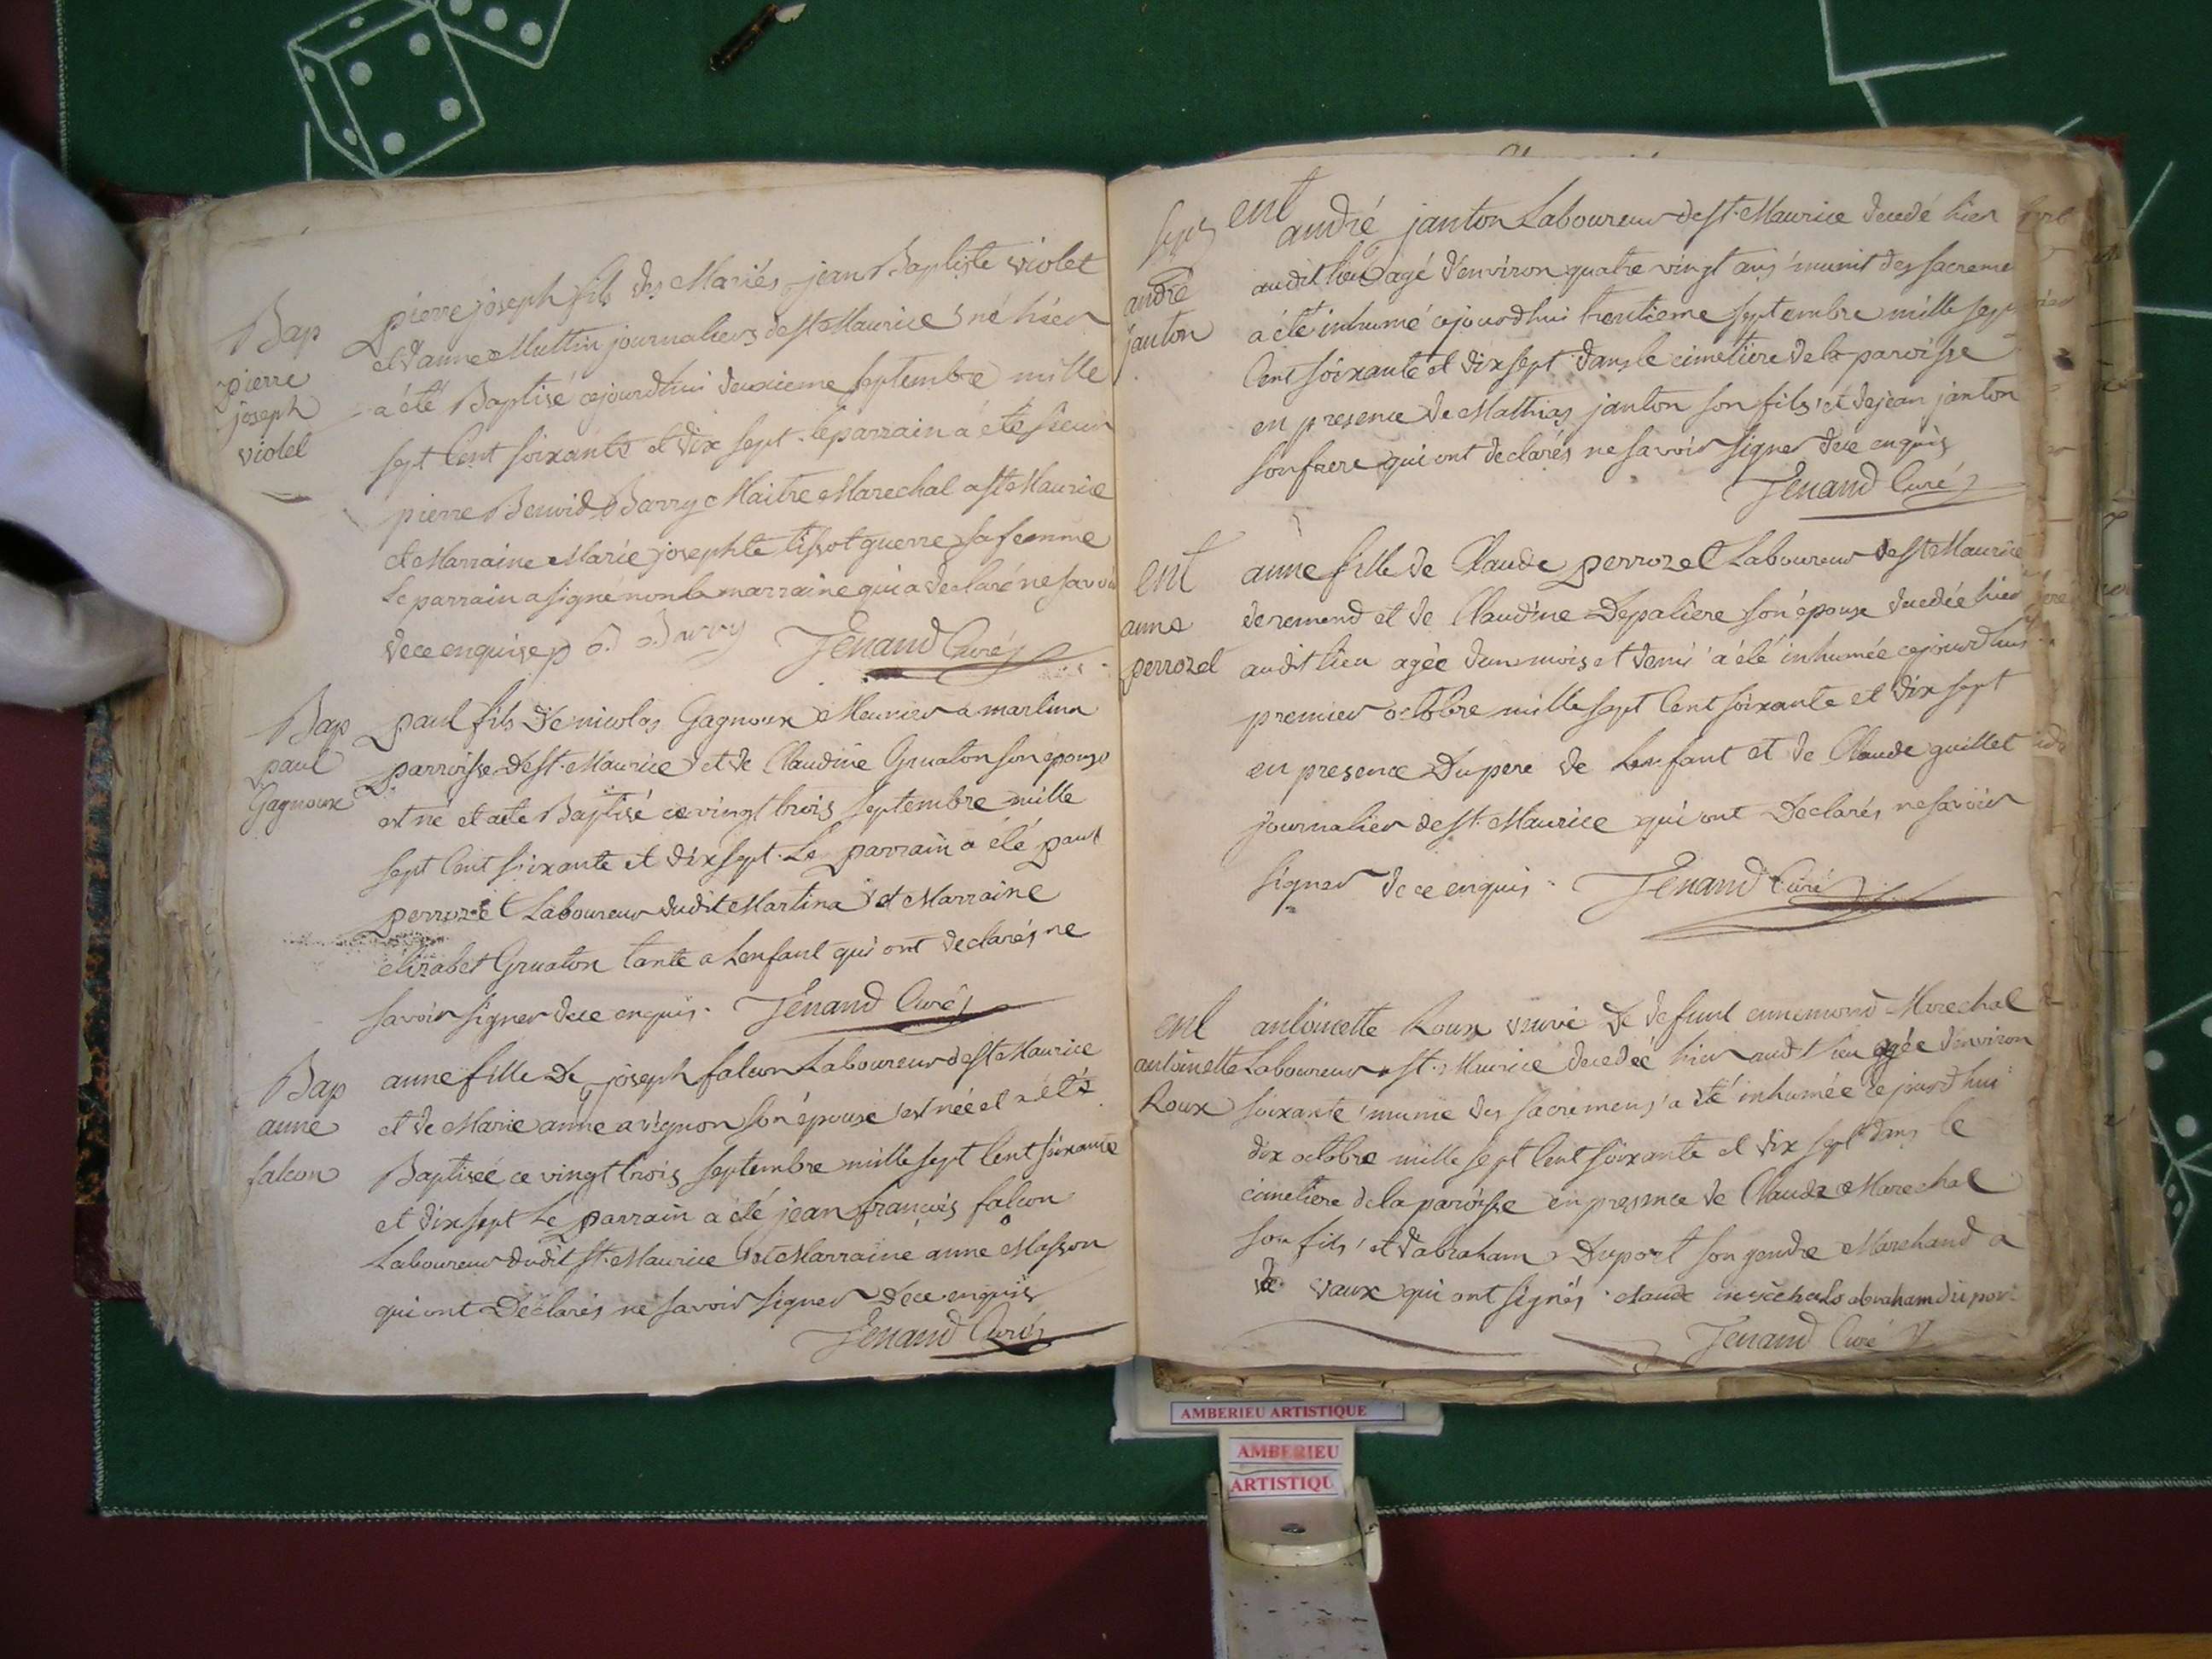 Bap
pierre
joseph
violet
pierre joseph fils des Mariés jean Baptiste violet
et d'anne Muttin journaliers de st Maurice né hier
a été Baptisé cejourdhui deuxieme septembre mille
sept Cent soixante et dix sept. le parrain a été sieur
pierre Benoid Barry Maitre Marechal a st Maurice
et Marraine Marie josephte tissot guerre sa femme
Le parrain a signé non la marraine qui a declaré ne savoir
de ce enquise p B Barry Jenand Curé
Bap
paul
Gagnoux
paul fils de nicolas Gagnoux Meunier a martina
parroisse de st Maurice et de Claudine Gruaton son épouse
est né et a eté Baptisé ce vingt trois septembre mille
sept Cent soixante et dix sept. Le parrain a été paul
perrozet Laboureur dudit Martina et Marraine
elizabet Gruaton tante a Lenfant qui ont declarés ne
savoir signer de ce enquis. Jenand Curé
Bap
anne
falcon
anne fille De joseph falcon Laboureur de st Maurice
et de Marie anne avignon son épouse est née et a été
Baptiseé ce vingt trois septembre mille sept Cent soixante
et dix sept Le parrain a été jean françois falcon
Laboureur dudit st. Maurice et Marraine anne Masson
qui ont Déclarés ne savoir signer de ce enquis
Jenand Curé
ent
andré
janton
andré janton Laboureur de st. Maurice decedé hier
audit lieu agé d'environ quatre vingt ans munit des sacreme
a été inhumé cejourdhui trentieme septembre mille sept
Cent soixante et dix sept dans le cimetiere de la paroisse
en presence de Mathias janton son fils et de jean janton
son frere qui ont declarés ne savoir signer de ce enquis
Jenand Curé
ent
anne
perrozet
anne fille de Claude perrozet Laboureur de st Maurice
de remend et de Claudine Depaliere son épouse decedée hier
audit lieu agée d'un mois et demi a été inhumée cejourdhui
premier octobre mille sept Cent soixante et dix sept
en presence Du pere de Lenfant et de Claude guillet
journalier de st. Maurice qui ont Declarés ne savoir
signer de ce enquis. Jenand Curé
ent
antoinette
Roux
antoinette Roux veuve De defunt ennemond Marechal
Laboureur a st. Maurice decedeé hier audit lieu agée d'environ
soixante munie des sacremens a été inhumée cejourdhui
dix octobre mille sept Cent soixante et dix sept dans le
cimetiere de la paroisse en presence de Claude Marechal
son fils et d'abraham Duport son gendre Marchand a
de vaux qui ont signés. claude marechal abraham duport
Jenand Curé
AMBERIEU ARTISTIQUE
AMBERIEU
ARTISTIQU